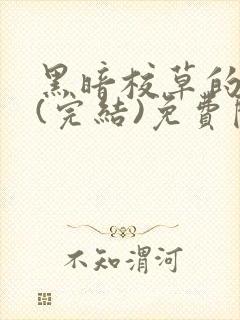 黑暗校草的
(完結)免費
不知渭河